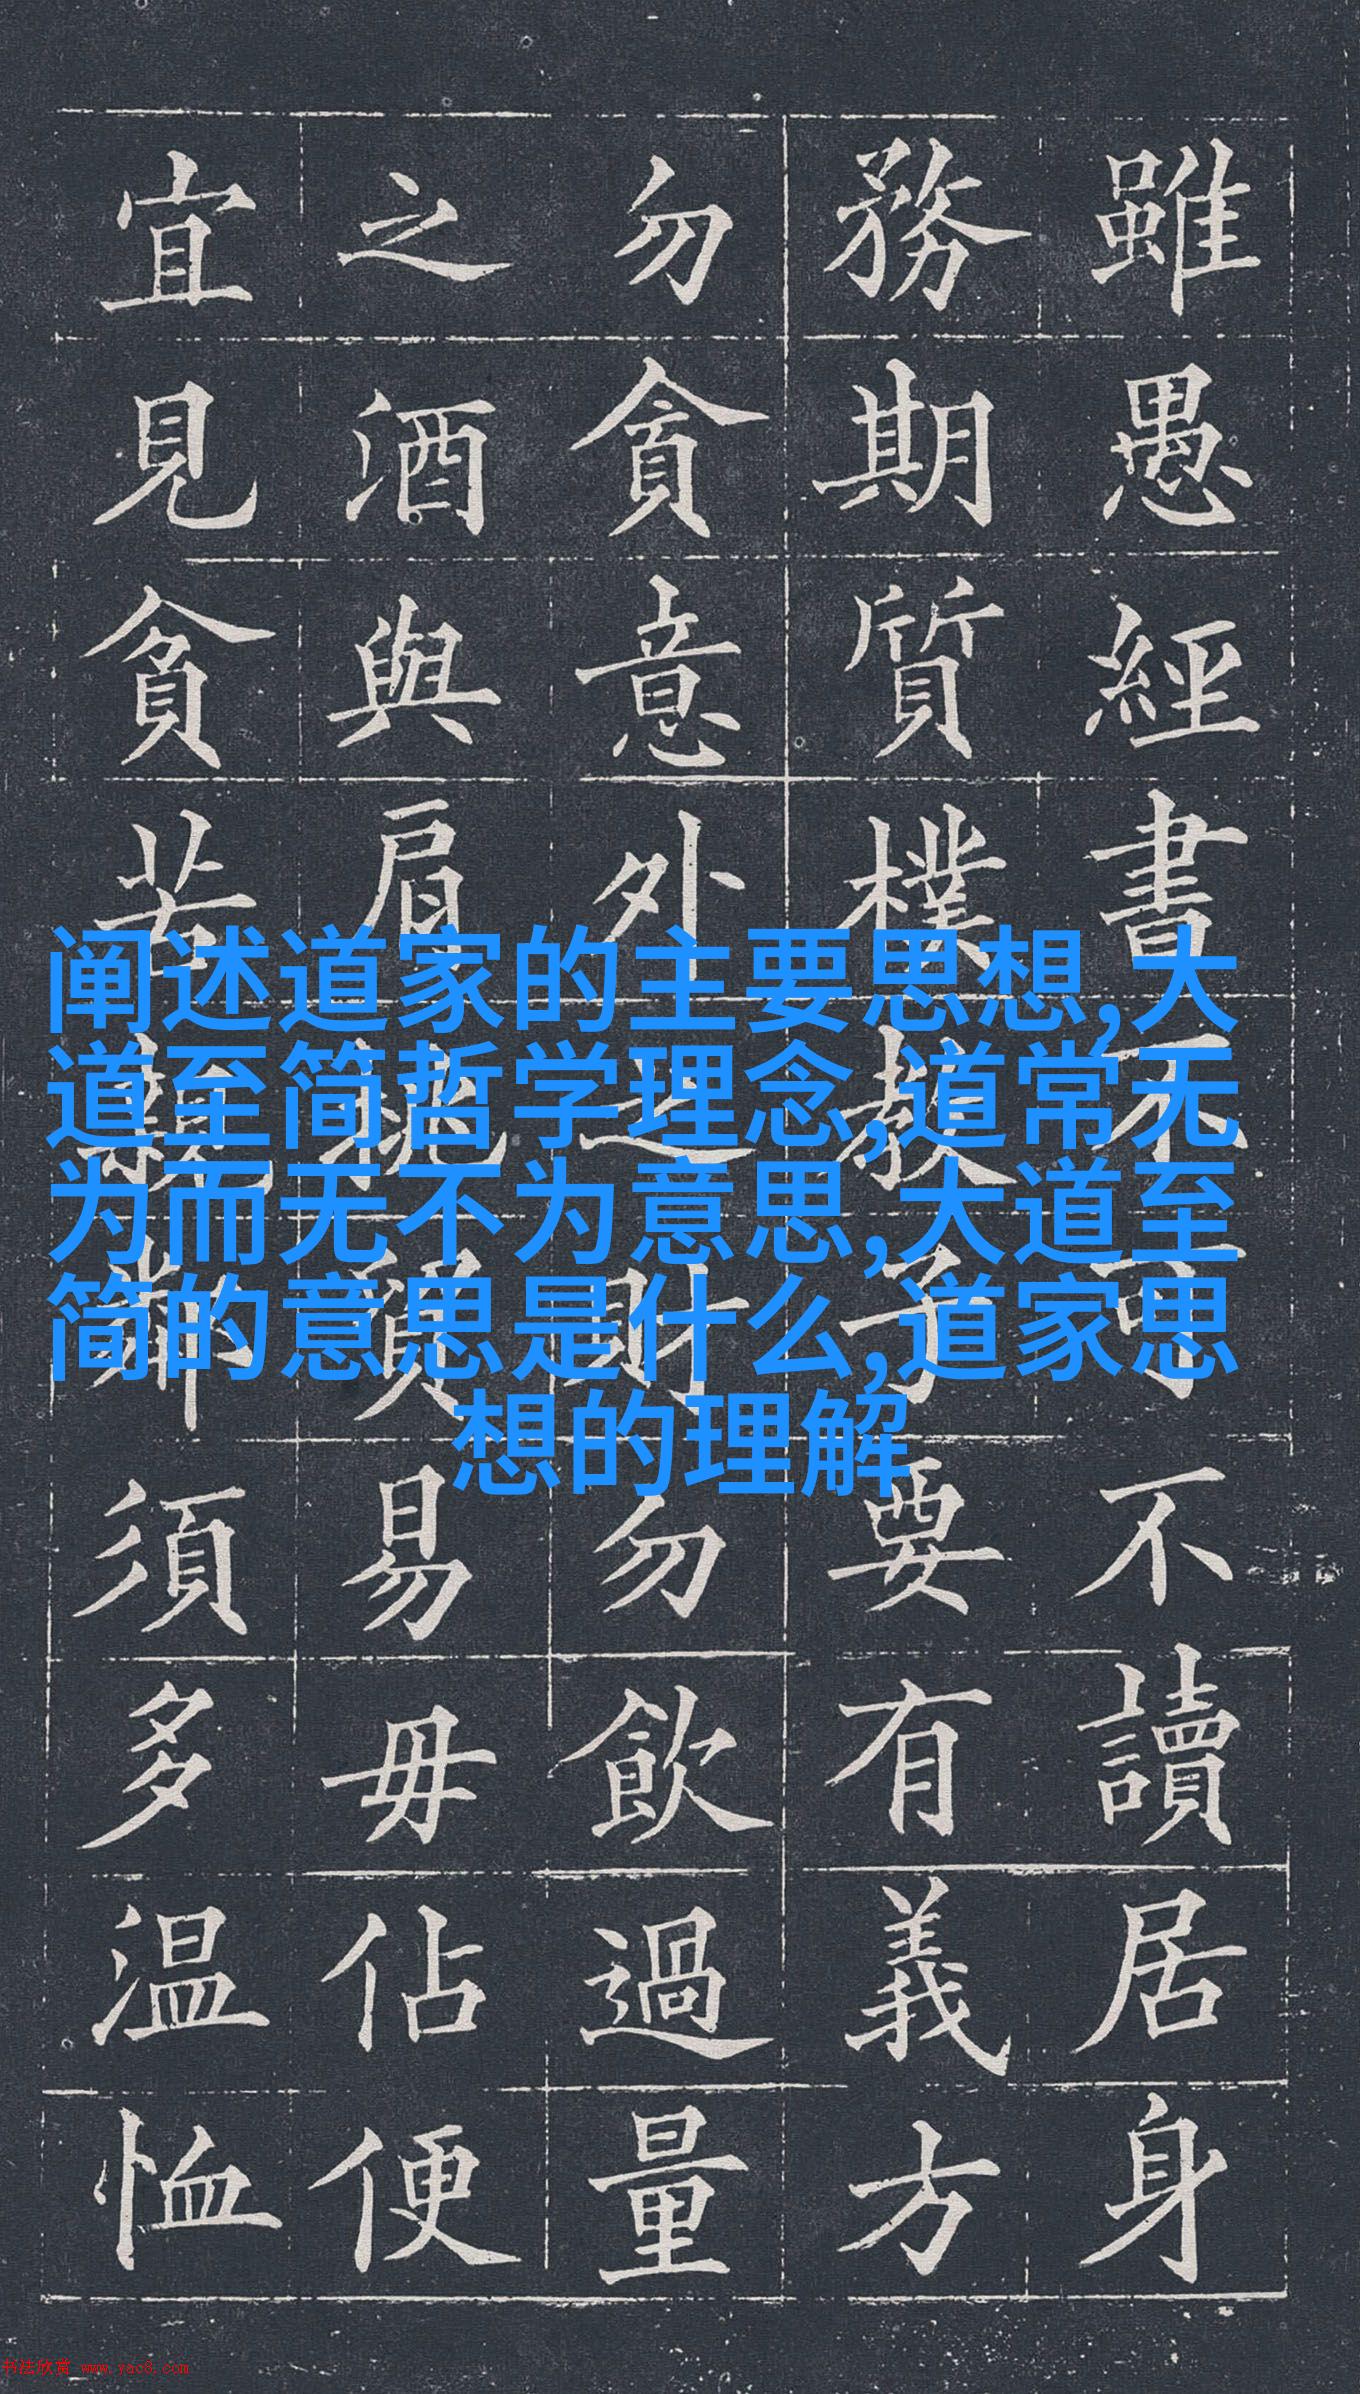 雖愚經書不可不讀居身
務期質樸教子要有義方
勿貪意外之財勿飲過量
之酒與肩挑貿易毋佔便
宜見貧苦親鄰須多温恤
阐述道家的主要思想,大
道至简哲学理念,道常无
为而无不为意思,大道至
简的意思是什么,道家思
想的理解
书法欣赏 www.yac8.com